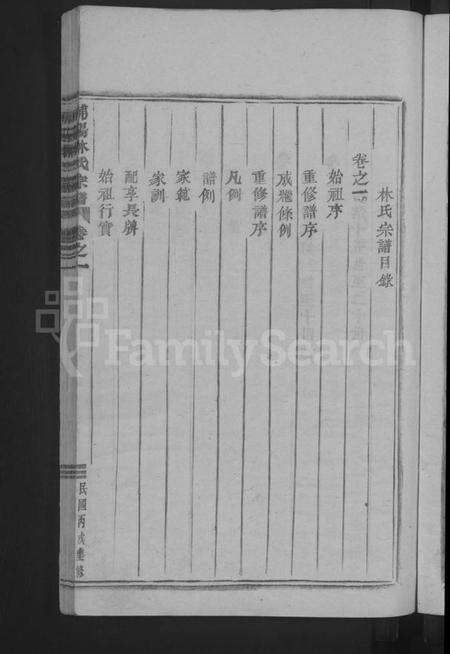 林氏宗譜目錄
卷之一
始祖序
重修譜序
戒飭條例
重修譜序
凡例
譜例
家範
家訓
配享長牌
始祖行實
林氏宗譜
卷之一
民國丙戌重修
FamilySearch